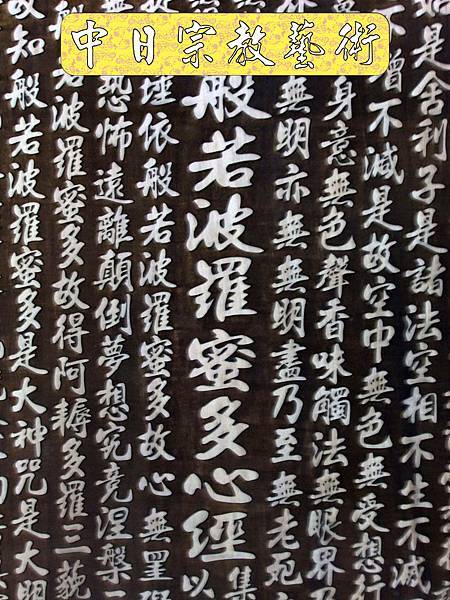 中日宗教藝術
是舍利子是諸法空相不生不滅
不增不減是故空中無色無受想行
身意無色聲香味觸法無眼界乃
無明亦無無明盡乃至無老死亦
集
般若波羅蜜多心經
以
埵依般若波羅蜜多故心無罣礙
恐怖遠離顛倒夢想究竟涅槃
般若波羅蜜多故得阿耨多羅三藐
故知般若波羅蜜多是大神咒是大明